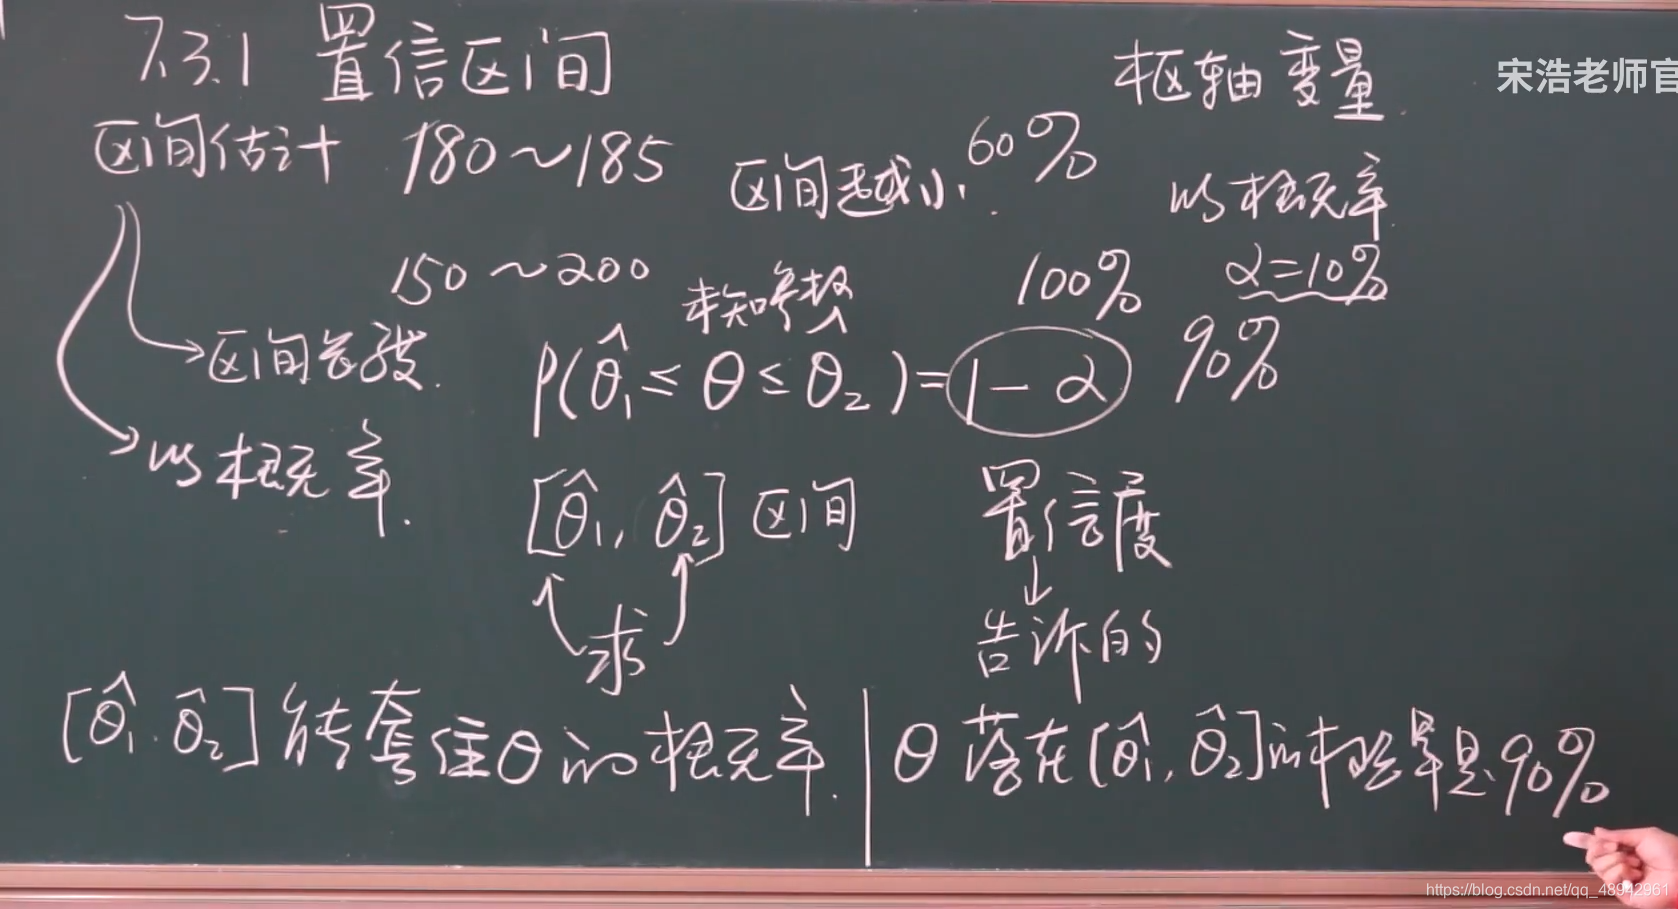 7.3.1 置信区间
枢轴变量
宋浩老师官
区间估计 180～185
区间越小. 60%
以概率
150～200
未知参数
100%
α=10%
区间长度.
P(θ̂₁≤θ≤θ̂₂)=1-α
90%
以概率.
[θ̂₁, θ̂₂]区间
置信度
↓
求
告诉的
[θ̂₁. θ̂₂]能套住θ的概率.
θ落在[θ̂₁, θ̂₂]的概率是90%
https://blog.csdn.net/qq_48942961